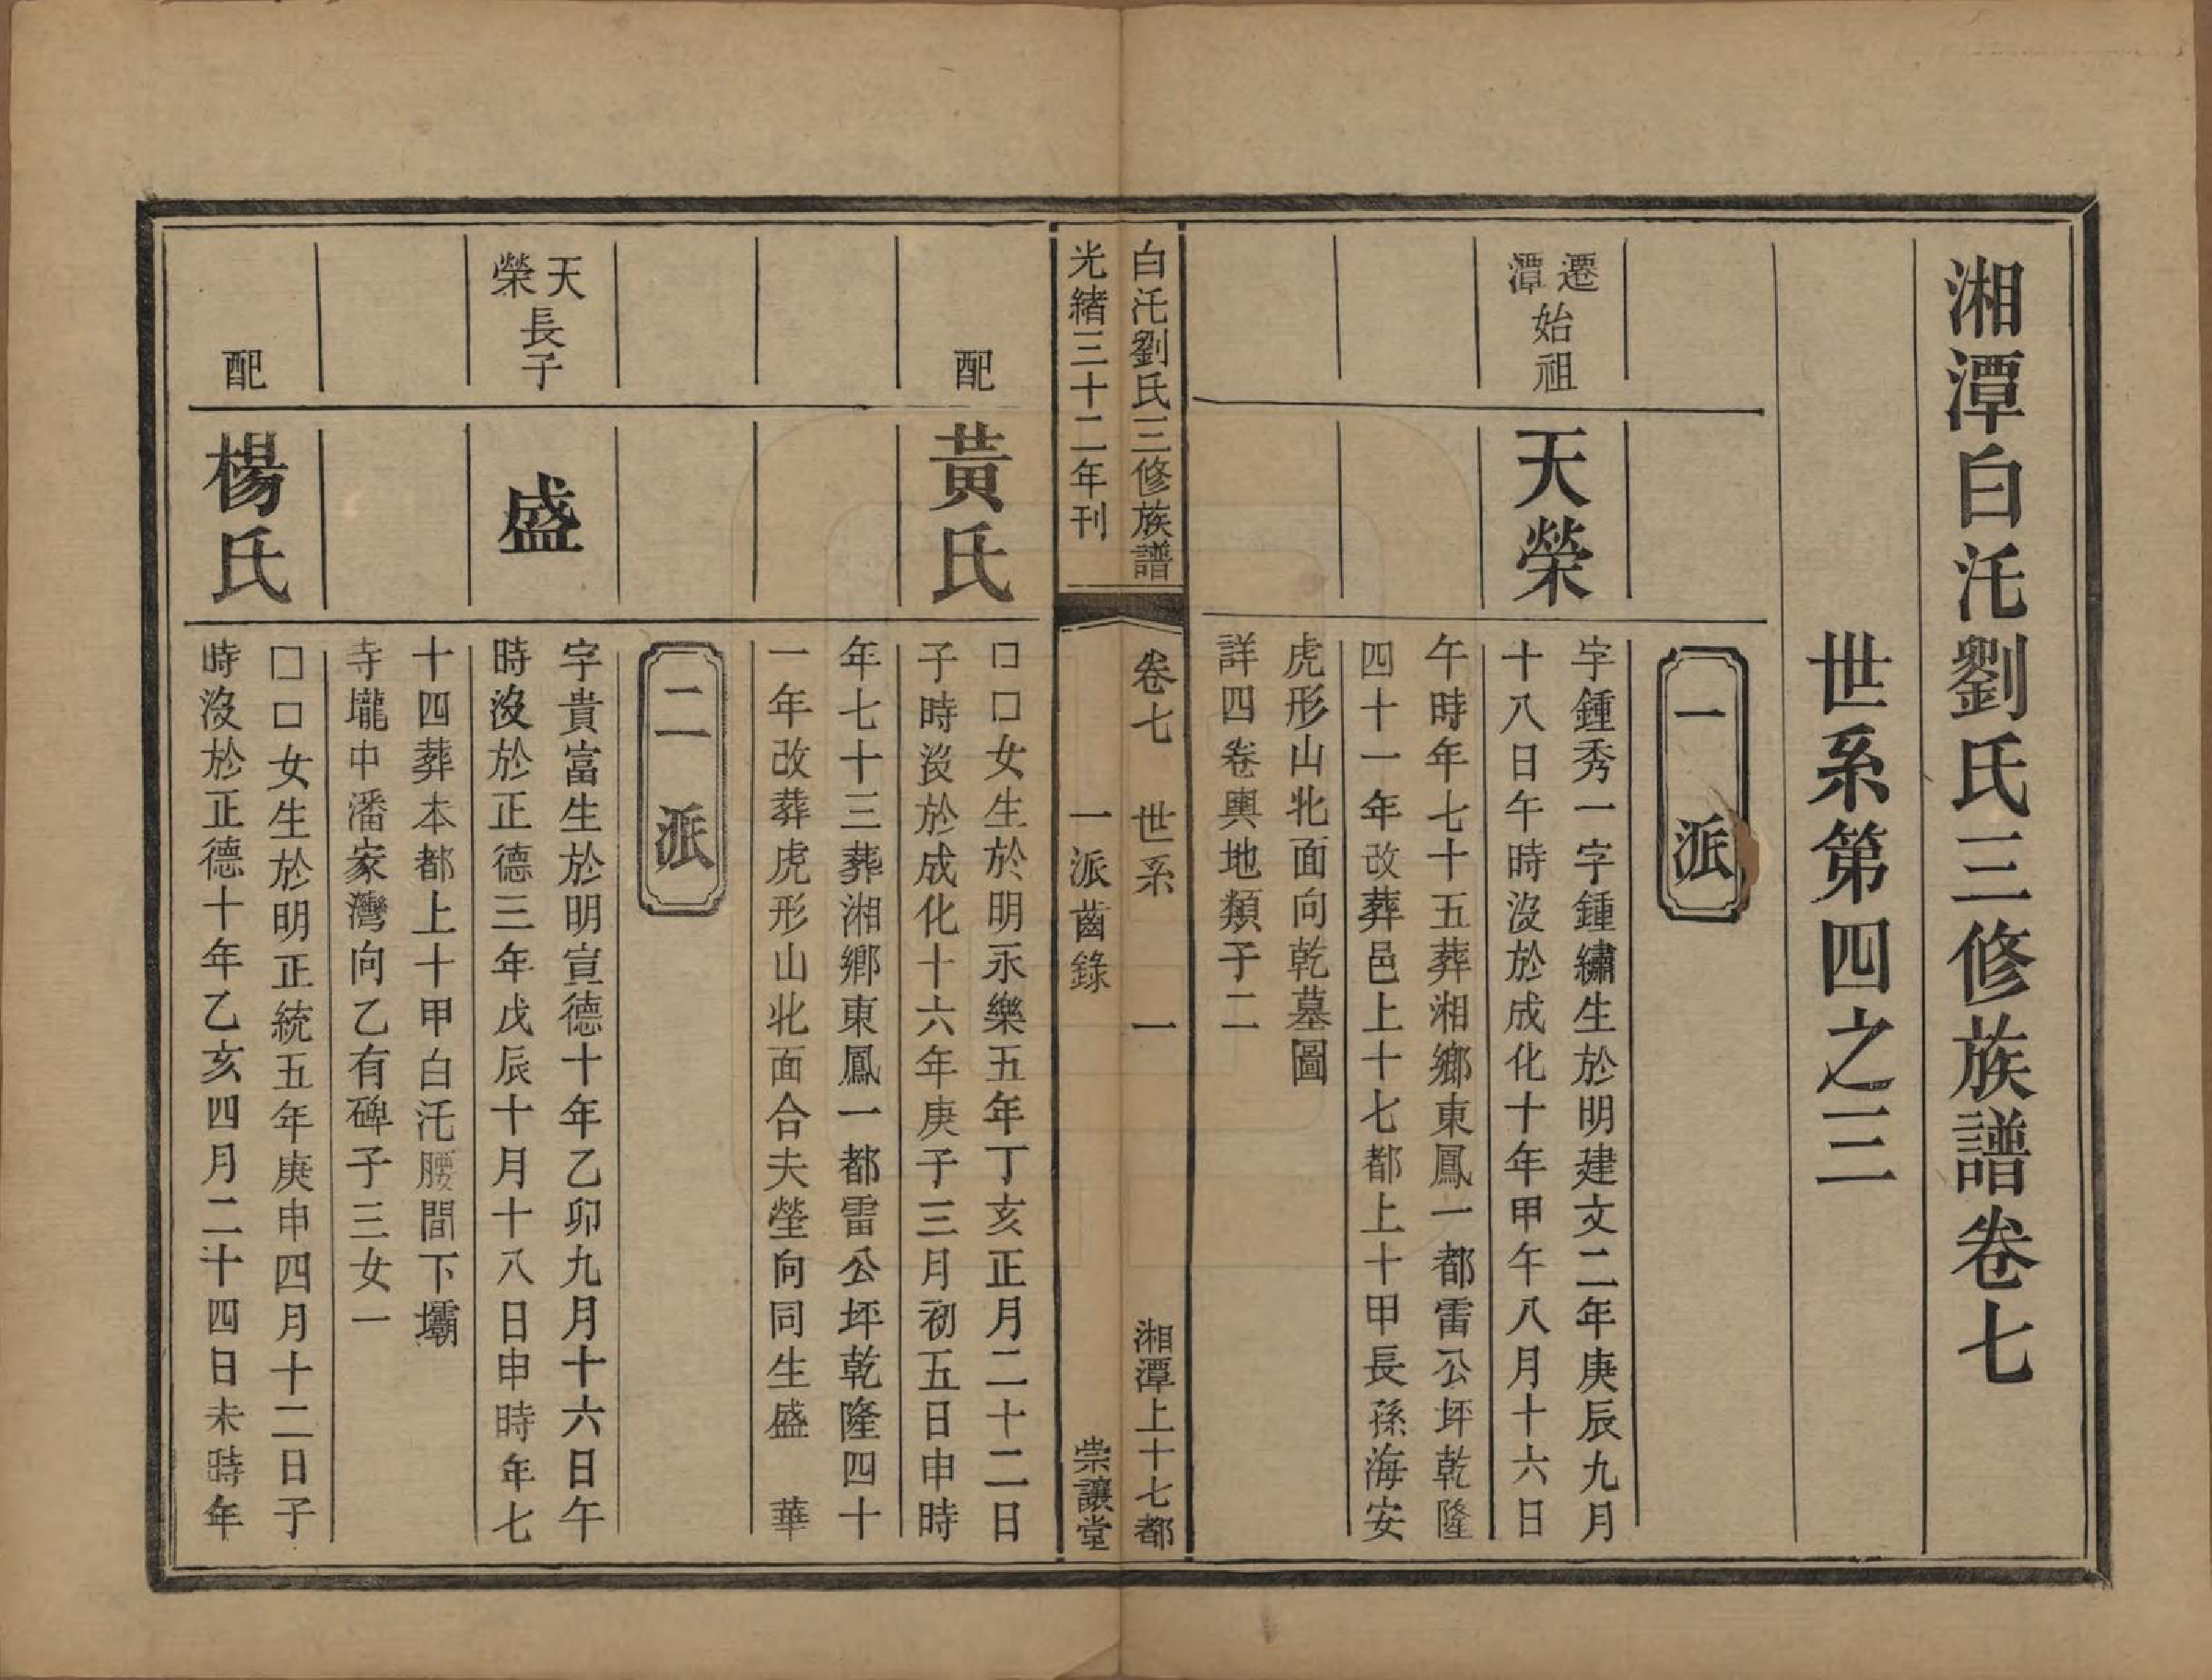 湘潭白汑劉氏三修族譜卷七
世系第四之三
一派
遷潭始祖
天榮
字鍾秀一字鍾繡生於明建文二年庚辰九月
十八日午時沒於成化十年甲午八月十六日
午時年七十五葬湘鄉東鳳一都雷公坪乾隆
四十一年改葬邑上十七都上十甲長孫海安
虎形山北面向乾墓圖
詳四卷輿地類子二
白汑劉氏三修族譜
卷七 世系 一 湘潭上十七都
光緒三十二年刊
一派齒錄 崇讓堂
配
黃氏
□□女生於明永樂五年丁亥正月二十二日
子時沒於成化十六年庚子三月初五日申時
年七十三葬湘鄉東鳳一都雷公坪乾隆四十
一年改葬虎形山北面合夫塋向同生盛 華
二派
天榮長子
盛
字貴富生於明宣德十年乙卯九月十六日午
時沒於正德三年戊辰十月十八日申時年七
十四葬本都上十甲白汑腰間下壩
寺壠中潘家灣向乙有碑子三女一
配
楊氏
□□女生於明正統五年庚申四月十二日子
時沒於正德十年乙亥四月二十四日未時年